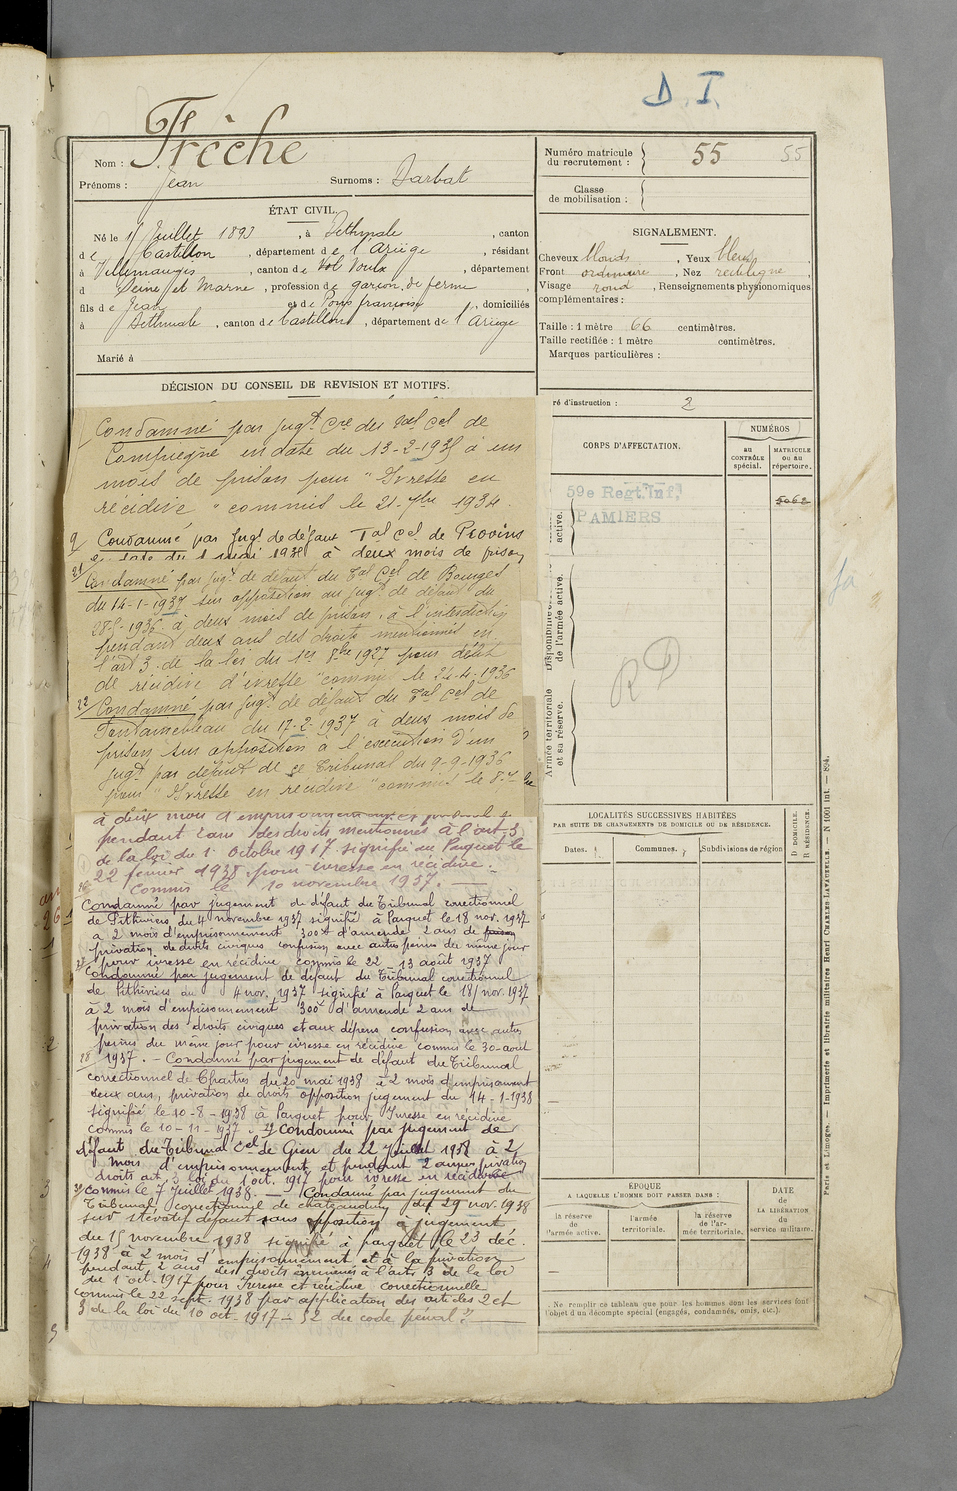 D. I.
Nom : Frèche
Prénoms : Jean Surnoms : Darbat
Numéro matricule du recrutement : 55 55
Classe de mobilisation :
ÉTAT CIVIL.
Né le 15 Juillet 1893, à Bethmale, canton
de Castillon, département de l'Ariège, résidant
à Villemauges, canton de , département
d Seine et Marne, profession de garçon de ferme
fils de Jean et de Pons françoise, domiciliés
à Bethmale, canton de Castillon, département de l'Ariège
Marié à
SIGNALEMENT.
Cheveux blonds, Yeux bleus,
Front ordinaire, Nez rectiligne,
Visage rond, Renseignements physionomiques
complémentaires :
Taille : 1 mètre 66 centimètres.
Taille rectifiée : 1 mètre centimètres.
Marques particulières :
DÉCISION DU CONSEIL DE REVISION ET MOTIFS.
Condamné par jugt Cre du Tal Cel de
Compiègne en date du 13-2-1935 à un
mois de prison pour "Ivresse en
récidive" commis le 21-7bre 1934
9/ Condamné par jugt de défaut Tal Cel de Provins
en date du 1 mai 1938 à deux mois de prison
21/ Condamné par jugt de défaut du Tal Cel de Bourges
du 14-1-1937 sur opposition au jugt de défaut du
28-5-1936 à deux mois de prison, à l'interdiction
pendant deux ans des droits mentionnés en
l'art 3. de la loi du 1er 8bre 1917 pour délit
de récidive d'ivresse "commis le 24-4-1936
22/ Condamné par jugt de défaut du Tal Cel de
Fontainebleau du 17-2-1937 à deux mois de
prison sur opposition à l'exécution d'un
jugt par défaut de ce Tribunal du 9-9-1936
pour "Ivresse en récidive" commis le 8-7bre
à deux mois d'emprisonnement et
pendant 2 ans des droits mentionnés à l'art 3
de la loi du 1 Octobre 1917 signifié au Parquet le
22 février 1938 pour ivresse en récidive.
Commis le 10 novembre 1937. —
26 Condamné par jugement de défaut du Tribunal correctionnel
de Pithiviers du 4 novembre 1937 signifié à Parquet le 18 nov. 1937
à 2 mois d'emprisonnement 300f d'amende 2 ans de prison
privation de droits civiques confusion avec autres peines du même jour
pour ivresse en récidive commis le 22 13 août 1937
27 Condamné par jugement de défaut du Tribunal correctionnel
de Pithiviers du 4 nov. 1937 signifié à Parquet le 18 nov. 1937
à 2 mois d'emprisonnement 300f d'amende 2 ans de
privation des droits civiques et aux dépens confusion avec autres
peines du même jour pour ivresse en récidive commis le 30 août
28 1937. — Condamné par jugement de défaut du Tribunal
correctionnel de Chartres du 20 mai 1938 à 2 mois d'emprisonnement
deux ans, privation de droits opposition jugement du 14-1-1938
signifié le 10-8-1938 à Parquet pour Ivresse en récidive
commis le 10-11-1937. 29 Condamné par jugement de
défaut du Tribunal Cel de Gien du 22 Juillet 1938 à 2
mois d'emprisonnement et pendant 2 années privation
droits art. 3 loi du 1 oct. 1917 pour ivresse en récidive
30/ commis le 7 juillet 1938. — Condamné par jugement du
Tribunal correctionnel de Chateaudun du 29 nov. 1938
sur itératif défaut sans opposition à jugement
du 15 novembre 1938 signifié à parquet le 23 déc
1938 à 2 mois d'emprisonnement et à la privation
pendant 2 ans des droits énumérés à l'art. 3 de la loi
du 1 oct. 1917 pour Ivresse et récidive correctionnelle
commis le 22 sept. 1938 par application des articles 2 et
3 de la loi du 10 oct. 1917 – 52 du code pénal ?
ré d'instruction : 2
CORPS D'AFFECTATION.
NUMÉROS
au CONTRÔLE spécial.
MATRICULE OU AU répertoire.
59e Regt. Inf.
PAMIERS
5062
active.
Disponibilité
de l'armée active.
Armée territoriale
et sa réserve.
RD
LOCALITÉS SUCCESSIVES HABITÉES
PAR SUITE DE CHANGEMENTS DE DOMICILE OU DE RÉSIDENCE.
D DOMICILE.
R RÉSIDENCE.
Dates. Communes. Subdivisions de région
ÉPOQUE
A LAQUELLE L'HOMME DOIT PASSER DANS :
la réserve de l'armée active.
l'armée territoriale.
la réserve de l'armée territoriale.
DATE de LA LIBÉRATION du service militaire.
. Ne remplir ce tableau que pour les hommes dont les services font
l'objet d'un décompte spécial (engagés, condamnés, omis, etc.).
Paris et Limoges. — Imprimerie et librairie militaires Henri CHARLES-LAVAUZELLE. — N 1001 int. — 894.